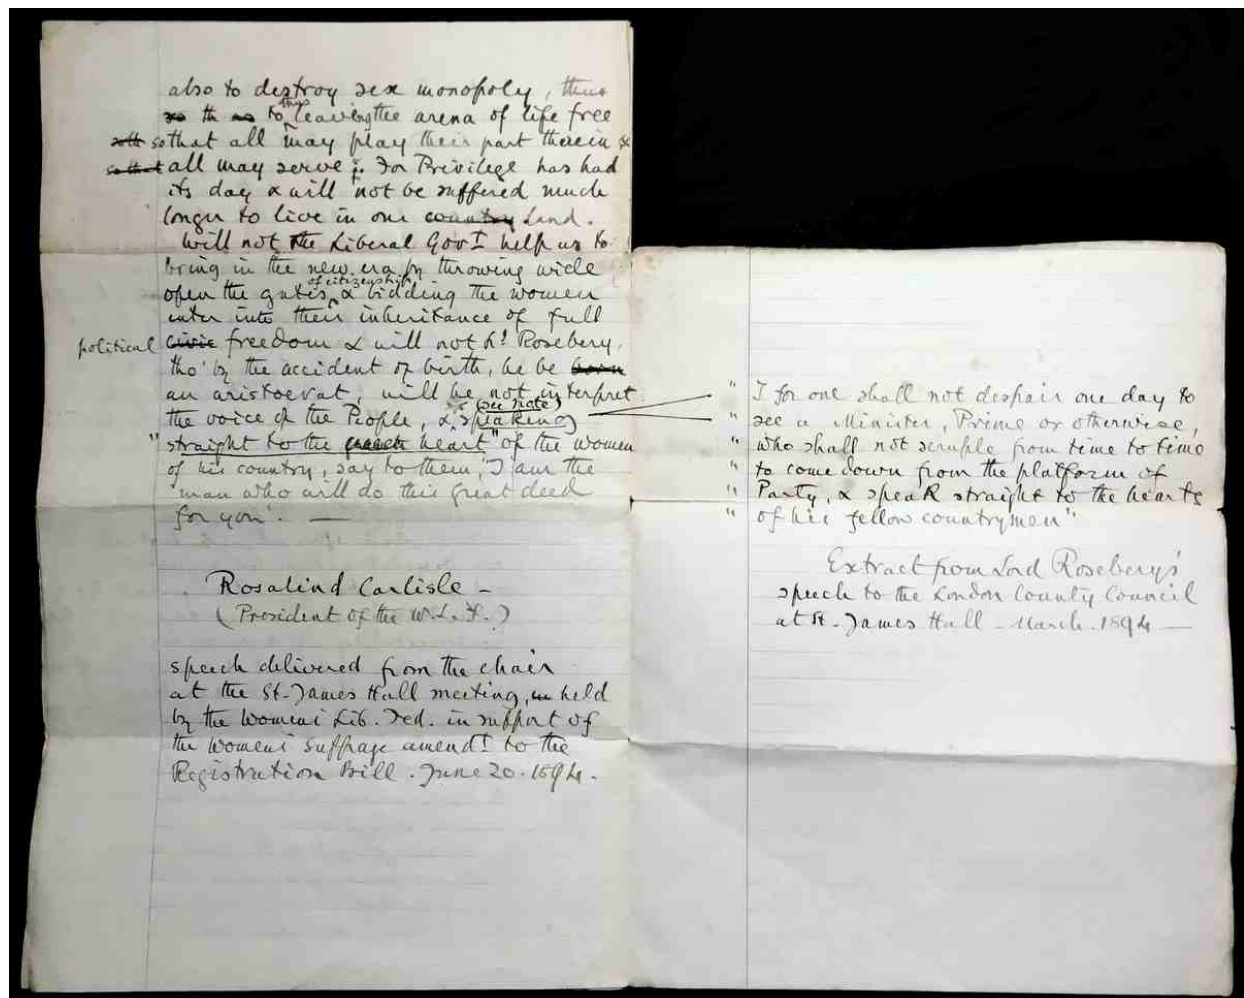 also to destroy sex monopoly, thus
so th as to thus leaving the arena of life free
so that all may play their part therein &
so that all may serve; For Privilege has had
its day & will not be suffered much
longer to live in our country Land.
Will not the Liberal Govt help us to
bring in the new era by throwing wide
open the gates of citizenship & bidding the women
enter into their inheritance of full
political civic freedom & will not Ld Rosebery,
tho' by the accident of birth, he be born
an aristocrat, will he not interpret
the voice of the People, & speaking (see note)
"straight to the heart" of the women
of his country, say to them, "I am the
man who will do this great deed
for you". —
Rosalind Carlisle –
(President of the W.L.F.)
speech delivered from the chair
at the St. James Hall meeting, held
by the Women's Lib. Fed. in support of
the Women's Suffrage amendt to the
Registration Bill. June 20. 1894.
" I for one shall not despair one day to
" see a Minister, Prime or otherwise,
" who shall not scruple from time to time
" to come down from the platform of
" Party, & speak straight to the hearts
" of his fellow countrymen"
Extract from Lord Rosebery's
speech to the London County Council
at St. James Hall – March. 1894 —